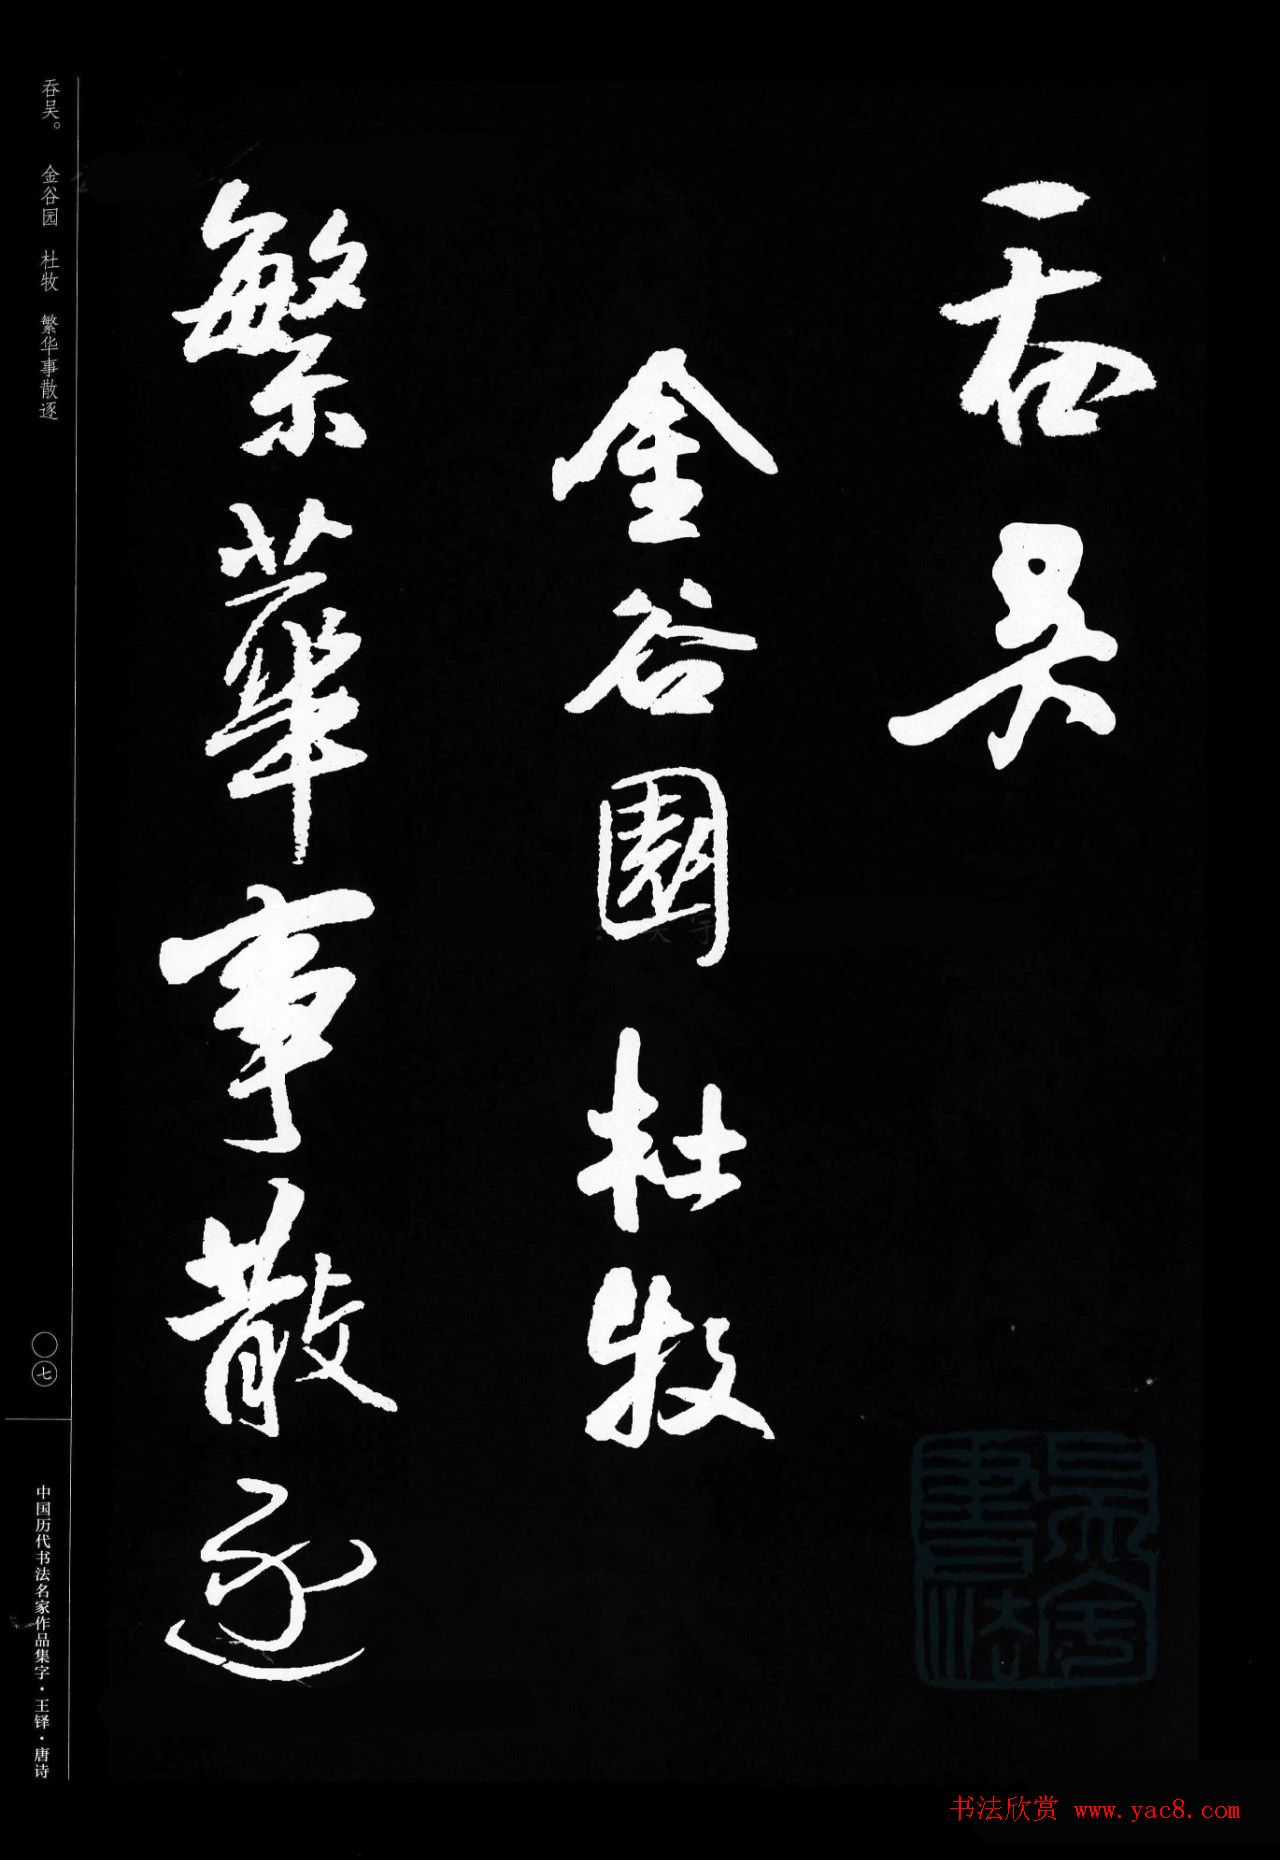 吞吴
金谷園 杜牧
繁華事散逐
吞吴。 金谷园 杜牧 繁华事散逐
〇七
中国历代书法名家作品集字·王铎·唐诗
书法欣赏 www.yac8.com